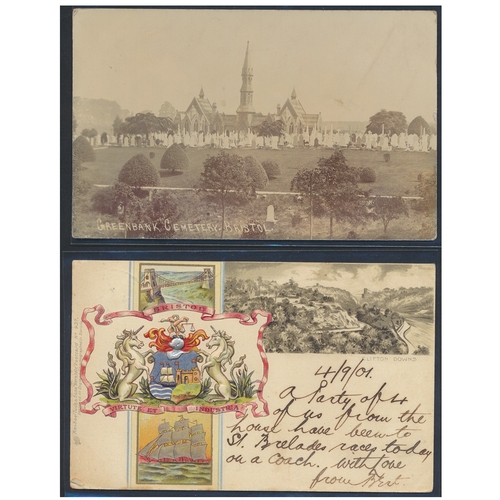 GREENBANK CEMETERY. BRISTOL.
BRISTOL
CLIFTON DOWNS
VIRTUTE ET INDUSTRIA
4/9/01.
A Party of 4
of us from the
house have been to
St. Brelades races today
on a Coach. With love
from Bert.